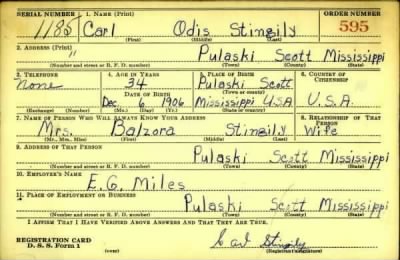 SERIAL NUMBER 1. NAME (Print) ORDER NUMBER
1185 Carl Odis Stingily 595
(First) (Middle) (Last)
2. ADDRESS (Print)
" Pulaski Scott Mississippi
(Number and street or R. F. D. number) (Town) (County) (State)
3. TELEPHONE 4. AGE IN YEARS 5. PLACE OF BIRTH 6. COUNTRY OF CITIZENSHIP
None 34 Pulaski Scott
DATE OF BIRTH (Town or county)
Dec. 6 1906 Mississippi U.S.A U.S.A.
(Exchange) (Number) (Mo.) (Day) (Yr.) (State or country)
7. NAME OF PERSON WHO WILL ALWAYS KNOW YOUR ADDRESS 8. RELATIONSHIP OF THAT PERSON
Mrs. Balzora Stingily Wife
(Mr., Mrs., Miss) (First) (Middle) (Last)
9. ADDRESS OF THAT PERSON
Pulaski Scott Mississippi
(Number and street or R. F. D. number) (Town) (County) (State)
10. EMPLOYER'S NAME
E.G. Miles
11. PLACE OF EMPLOYMENT OR BUSINESS
Pulaski Scott Mississippi
(Number and street or R. F. D. number) (Town) (County) (State)
I AFFIRM THAT I HAVE VERIFIED ABOVE ANSWERS AND THAT THEY ARE TRUE.
REGISTRATION CARD
D. S. S. Form 1 (over) Carl Stingily
(Registrant's signature)